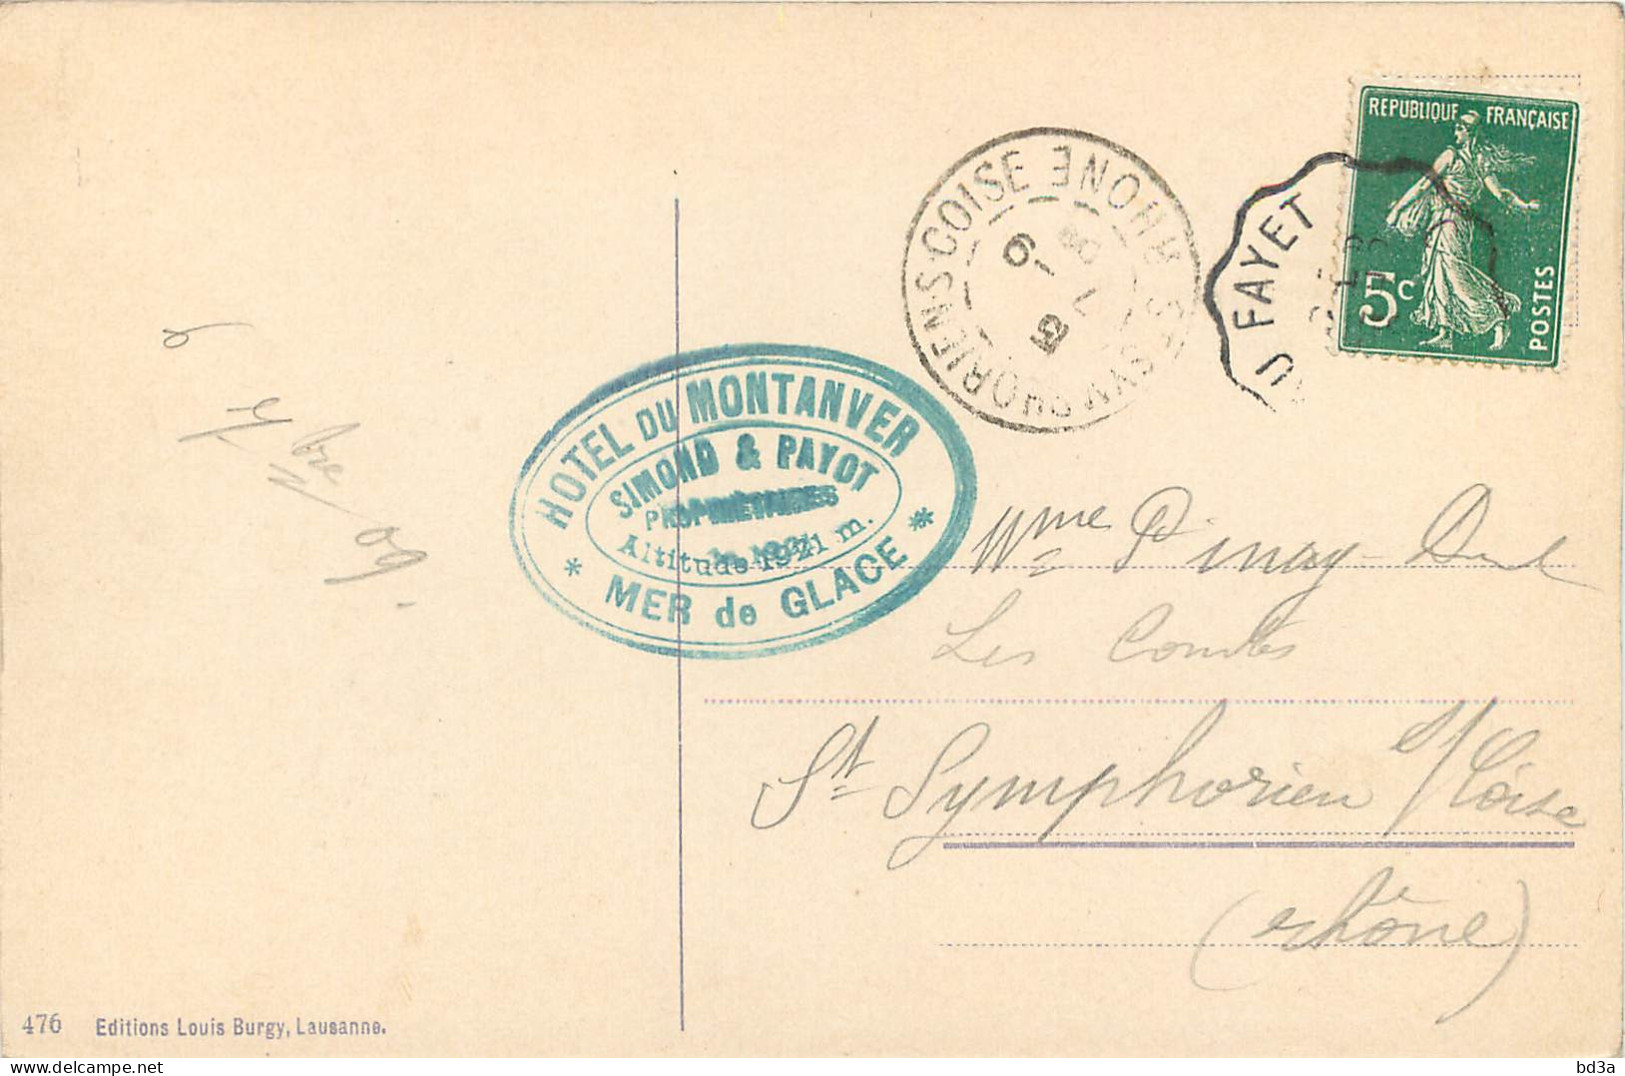 REPUBLIQUE FRANÇAISE
5c
POSTES
ST SYMPHORIEN-S-COISE RHONE
AU FAYET
HOTEL DU MONTANVER
SIMOND & PAYOT
PROPRIÉTAIRES
Altitude 1921 m.
* MER de GLACE *
7bre
09.
Mme Pinay
Les Combes
St Symphorien s/ Coise
(Rhône)
476 Editions Louis Burgy, Lausanne.
bd3a